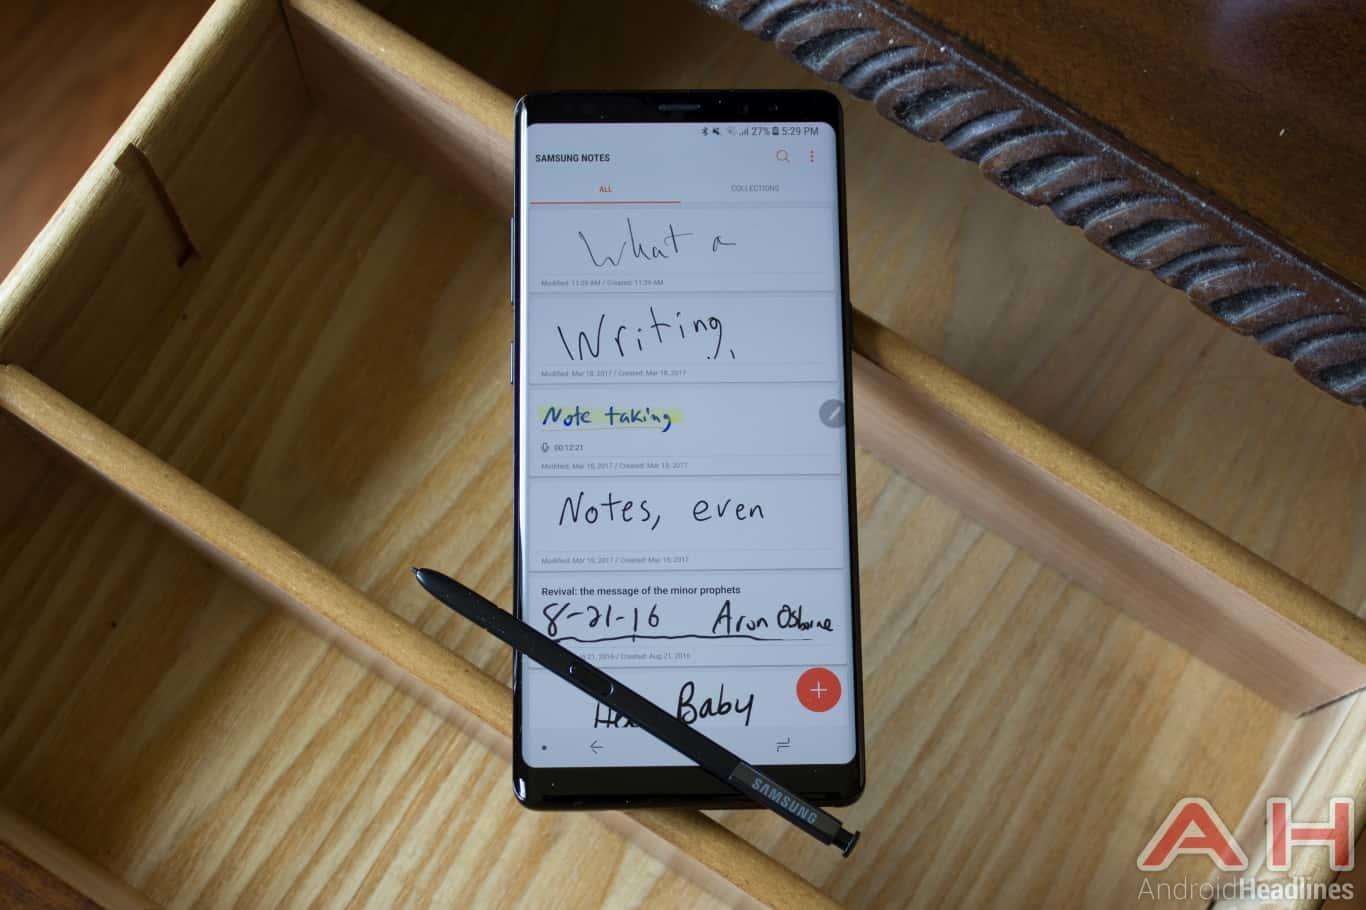 27% 5:29 PM
SAMSUNG NOTES
ALL COLLECTIONS
What a
Modified: 11:39 AM / Created: 11:39 AM
Writing,
Modified: Mar 18, 2017 / Created: Mar 18, 2017
Note taking
00:12:21
Modified: Mar 18, 2017 / Created: Mar 18, 2017
Notes, even
Modified: Mar 18, 2017 / Created: Mar 18, 2017
Revival: the message of the minor prophets
8-21-16 Aron Osborne
21, 2016 / Created: Aug 21, 2016
Baby
SAMSUNG
AH
AndroidHeadlines